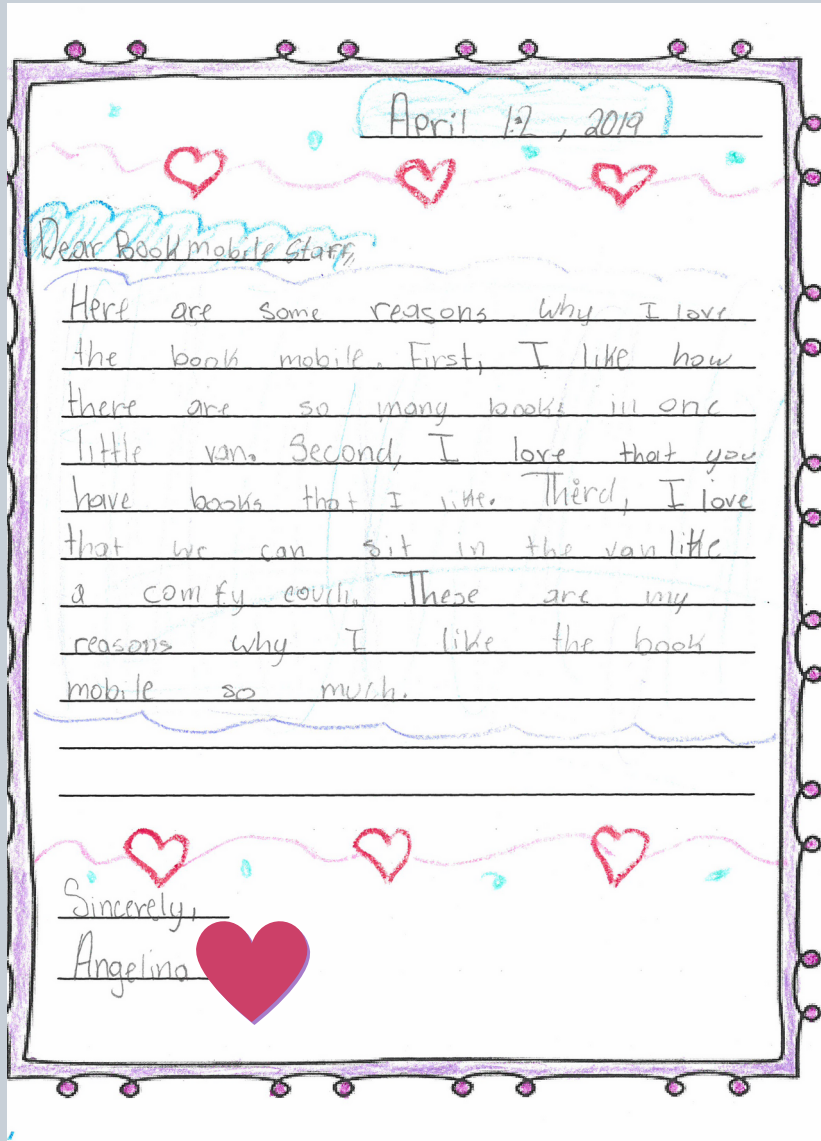 April 12, 2019
Dear Bookmobile Staff,
Here are some reasons why I love
the book mobile. First, I like how
there are so many books in one
little van. Second, I love that you
have books that I like. Third, I love
that we can sit in the van like
a comfy couch. These are my
reasons why I like the book
mobile so much.
Sincerely,
Angelina